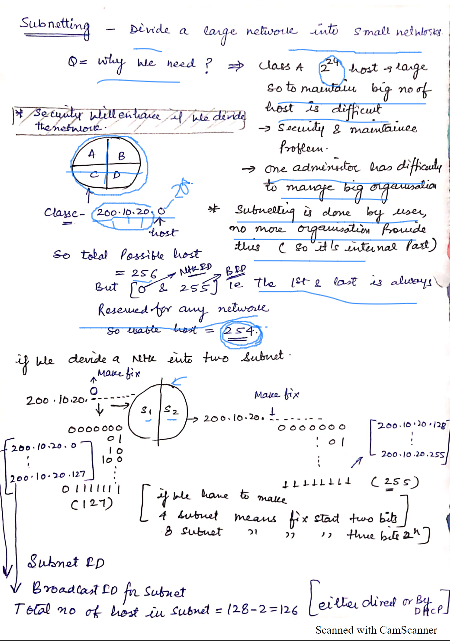 Subnetting - Divide a large network into small networks
Q= why we need? ⇒ Class A 2^24 host → large
so to maintain big no of
host is difficult
* Security will enhance if we devide
the network.
→ Security & maintaince
Problem.
A B
C D
→ one adminstor has difficulty
to manage big organisation
Class C - 200.10.20.0
2^8
host
* Subnetting is done by user,
no more organisation Provide
this (so it is internal Part)
So total Possible host
= 256
But [0 & 255] ie The 1st & last is always
Reserved for any network
So usable host = 254.
if we devide a N/K into two Subnet.
Make fix
200.10.20. 0 -------
S1 S2
200.10.20. -------
Make fix
0000000
01
10
100
01111111
(127)
200.10.20.0
200.10.20.127
0000000
01
11111111 (255)
200.10.20.128
200.10.20.255
[if we have to make
4 subnet means fix start two bits
8 subnet " " " three bits 2^n]
Subnet ID
Broadcast ID for Subnet
Total no of host in subnet = 128-2=126 [either direct or By DHCP]
Scanned with CamScanner